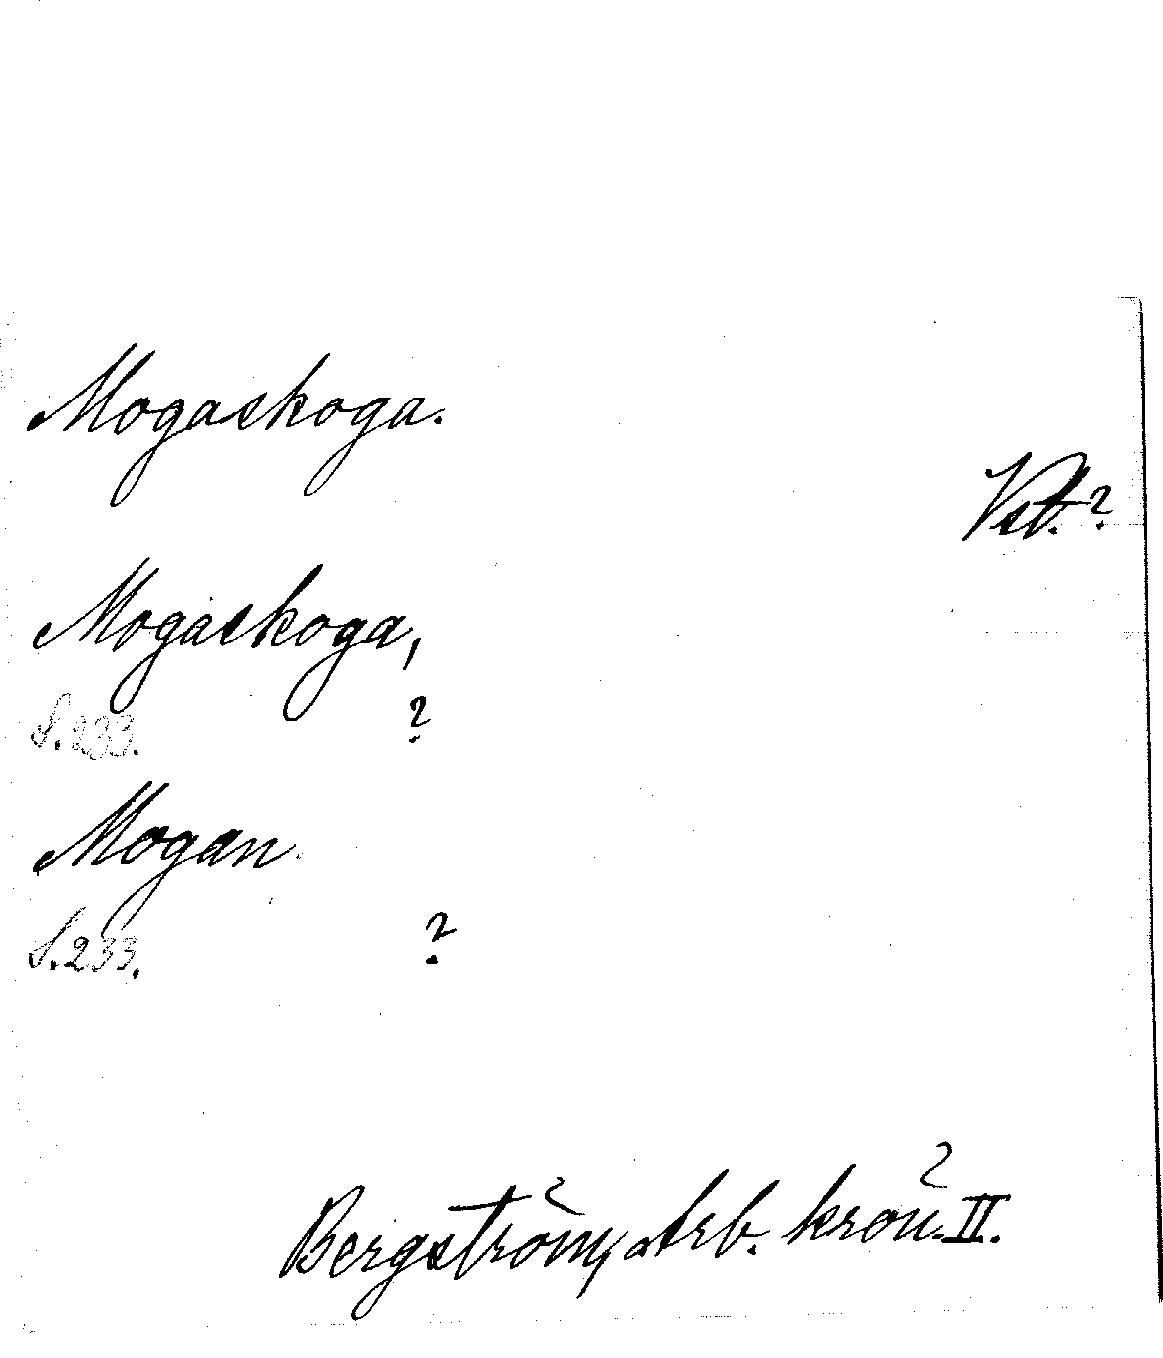 Mogaskoga.
Vstt.?
Mogaskoga,
S. 233. ?
Mogan.
S. 233. ?
Bergström, Arb. krön. II.